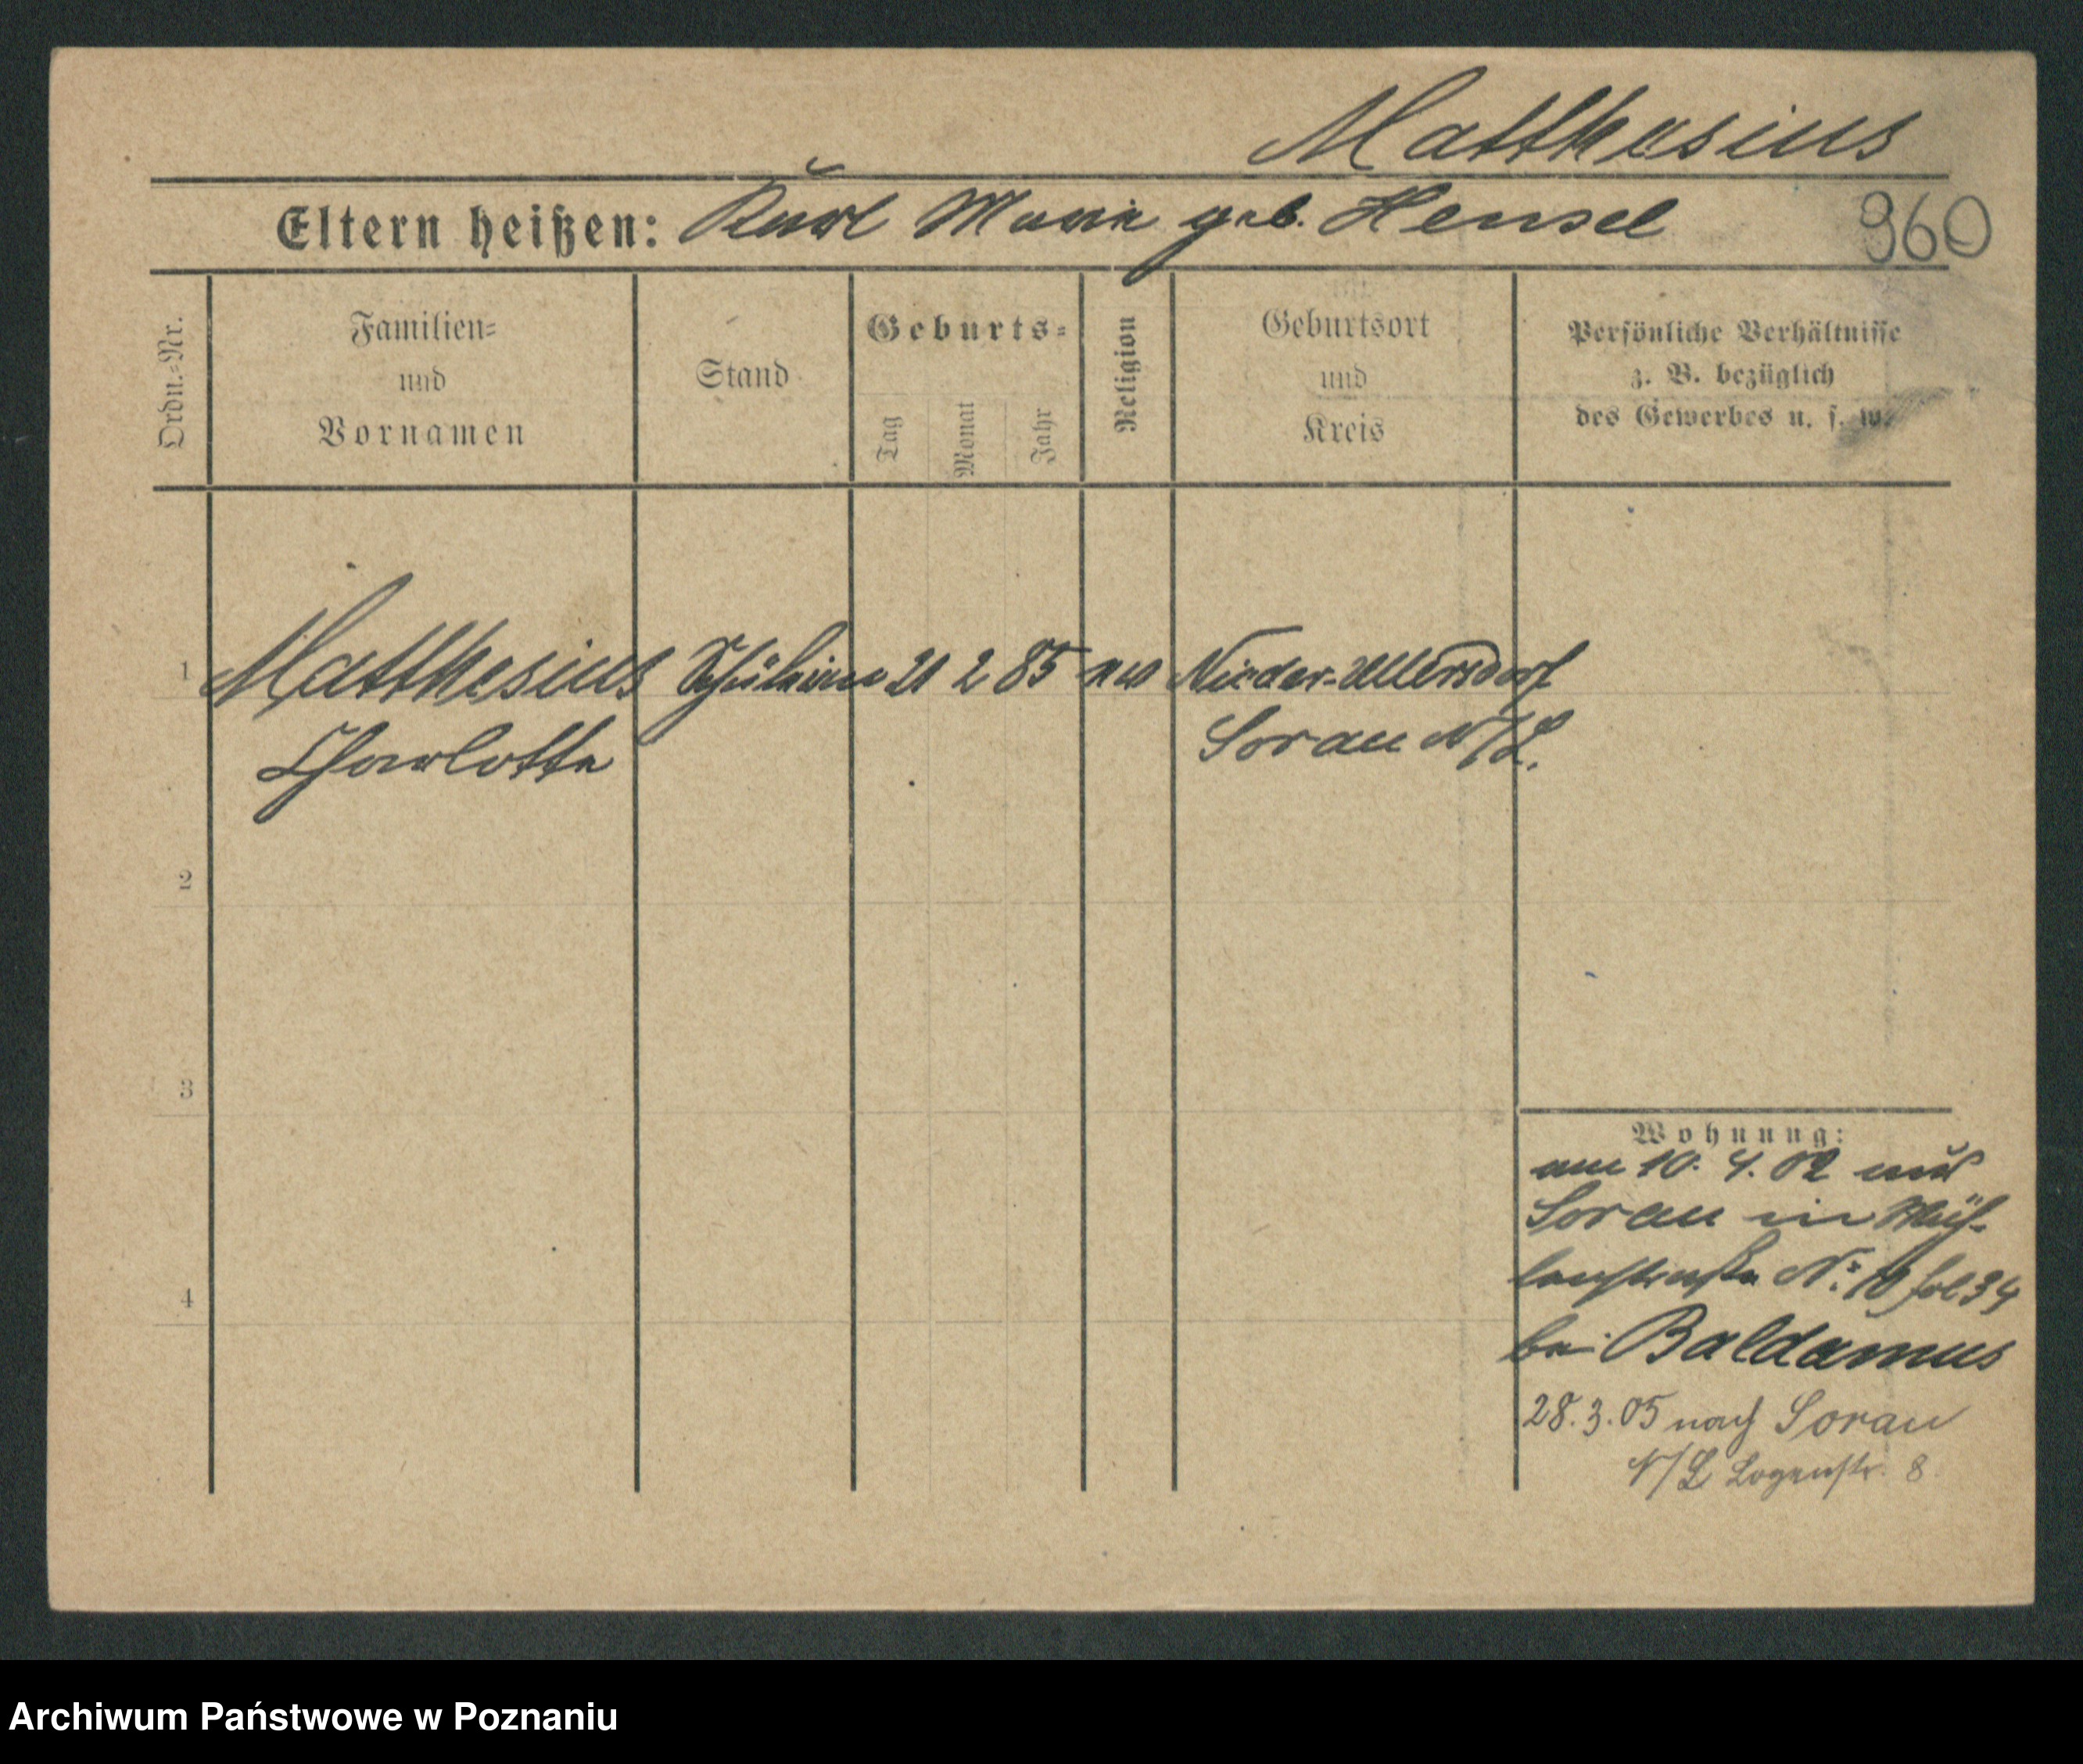 Matthesius
Eltern heißen: Kurl Marie geb. Hensel
960
Ordn.-Nr.
Familien- und Vornamen
Stand
Geburts-
Tag
Monat
Jahr
Religion
Geburtsort und Kreis
Persönliche Verhältnisse
z. B. bezüglich
des Gewerbes u. s. w.
1 Matthesius Schülerin 21 2 85 ev Nieder-Ullersdorf
Charlotte Sorau N/L.
2
3
4
Wohnung:
am 10. 4. 02 aus
Sorau in Müh-
lenstraße No: 10 fol 34
bei Baldamus
28. 3. 05 nach Sorau
N/L Logenstr. 8
Archiwum Państwowe w Poznaniu